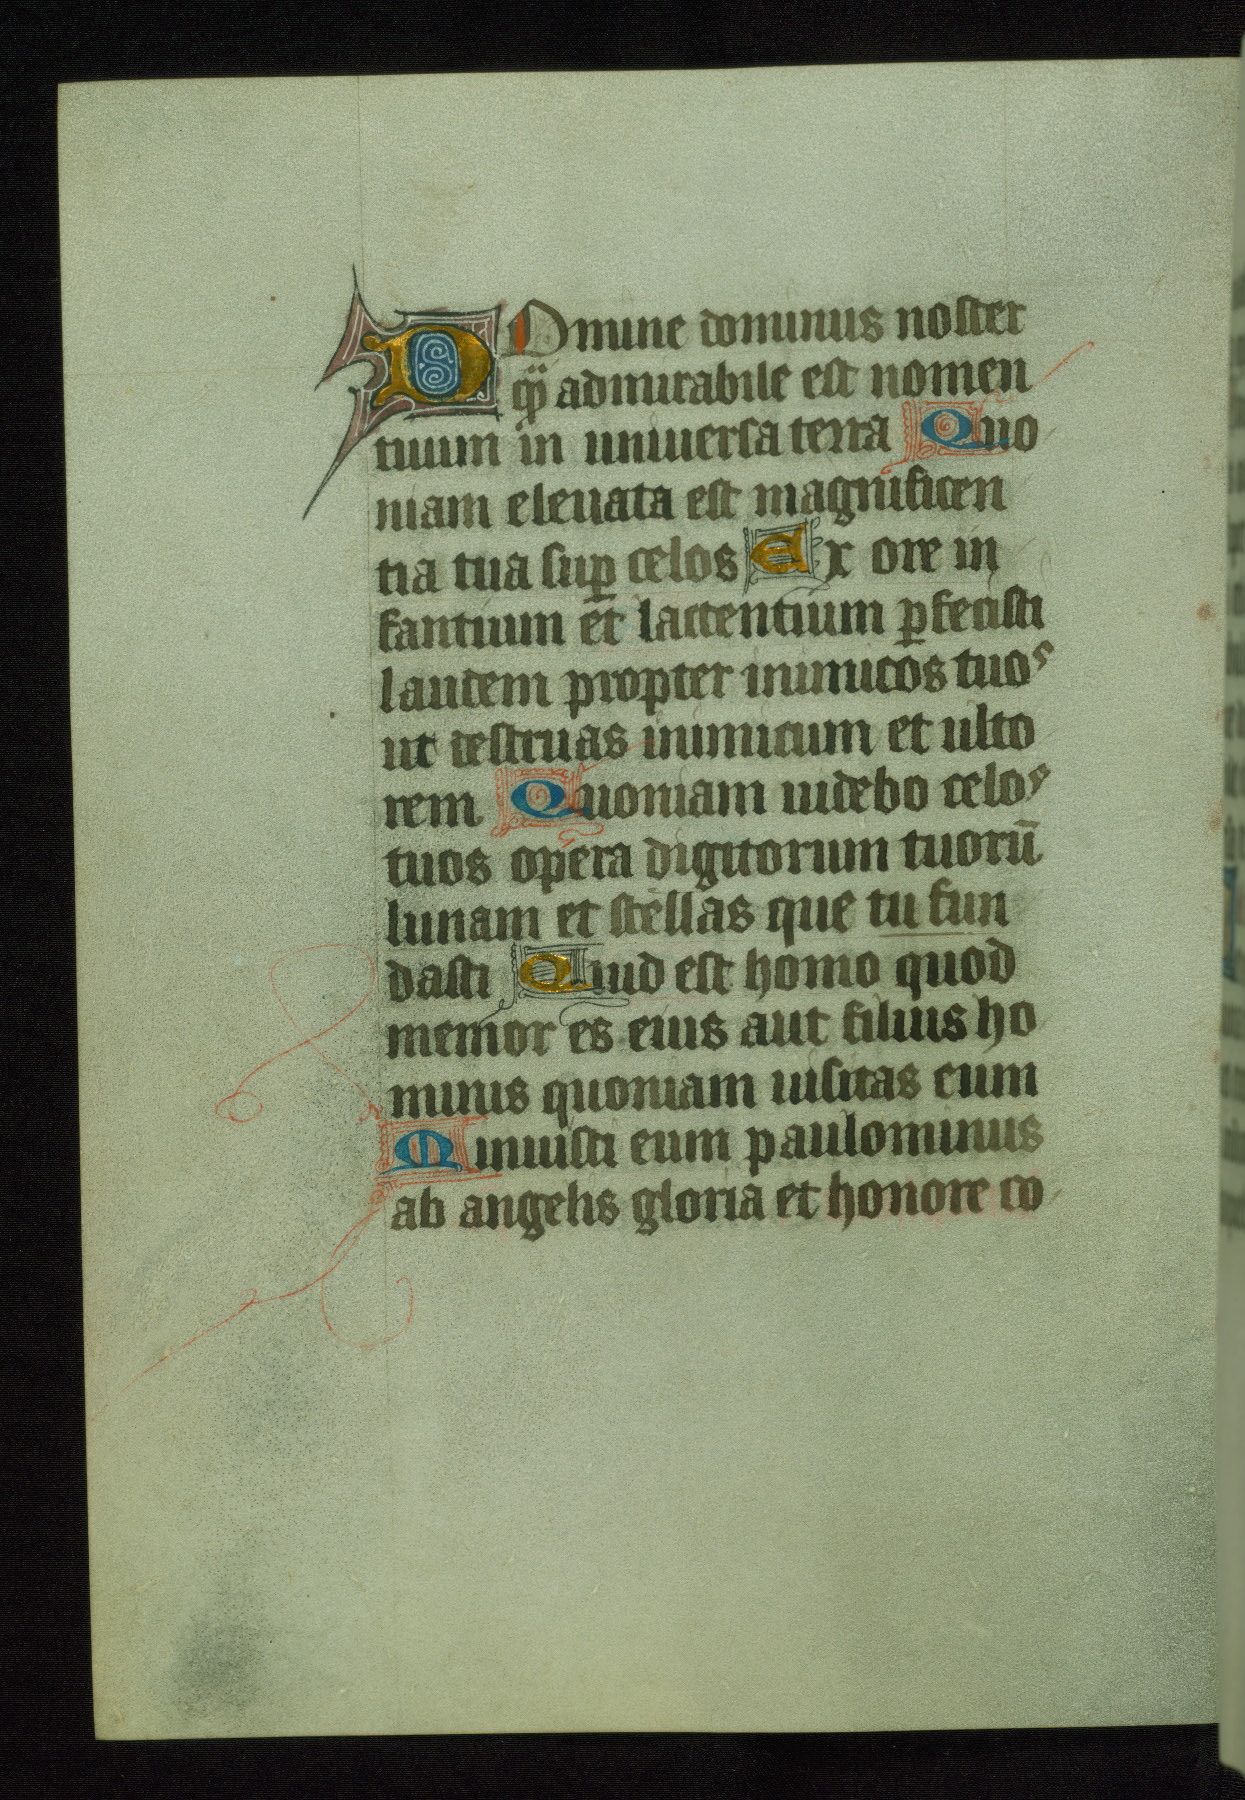 DOmine dominus noster
qͫ admirabile est nomen
tuum in uniuersa terra Quo
niam eleuata est magnificen
tia tua suꝑ celos Ex ore in
fantium et lactentium ꝑfecisti
laudem propter inimicos tuos
ut destruas inimicum et ulto
rem Quoniam uidebo celos
tuos opera digitorum tuorū
lunam et stellas que tu fun
dasti Quid est homo quod
memor es eius aut filius ho
minis quoniam uisitas eum
Minuisti eum paulominus
ab angelis gloria et honore co